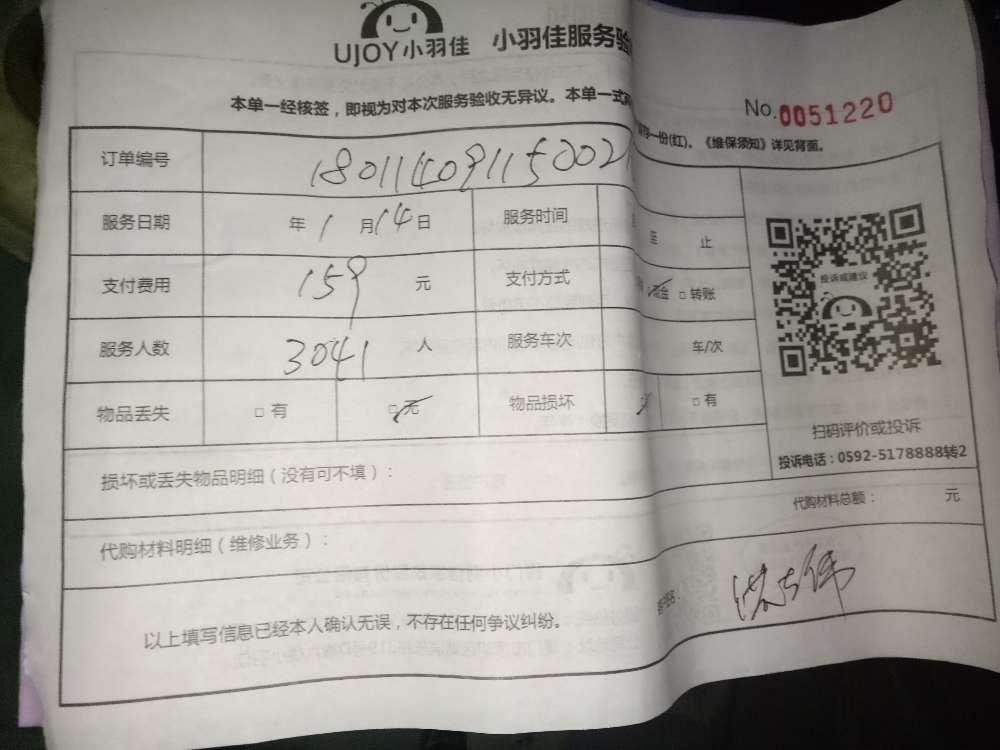 UJOY小羽佳 小羽佳服务验
本单一经核签，即视为对本次服务验收无异议。本单一式
No.0051220
一份(红)。《维保须知》详见背面。
订单编号 180114091150021
服务日期 年 1 月 14 日 服务时间 至 止
支付费用 159 元 支付方式 现金 □ 转账
服务人数 3041 人 服务车次 车/次
物品丢失 □ 有 □ 无 物品损坏 □ 有
投诉或建议
扫码评价或投诉
投诉电话：0592-5178888转2
损坏或丢失物品明细（没有可不填）：
代购材料总额： 元
代购材料明细（维修业务）：
以上填写信息已经本人确认无误，不存在任何争议纠纷。